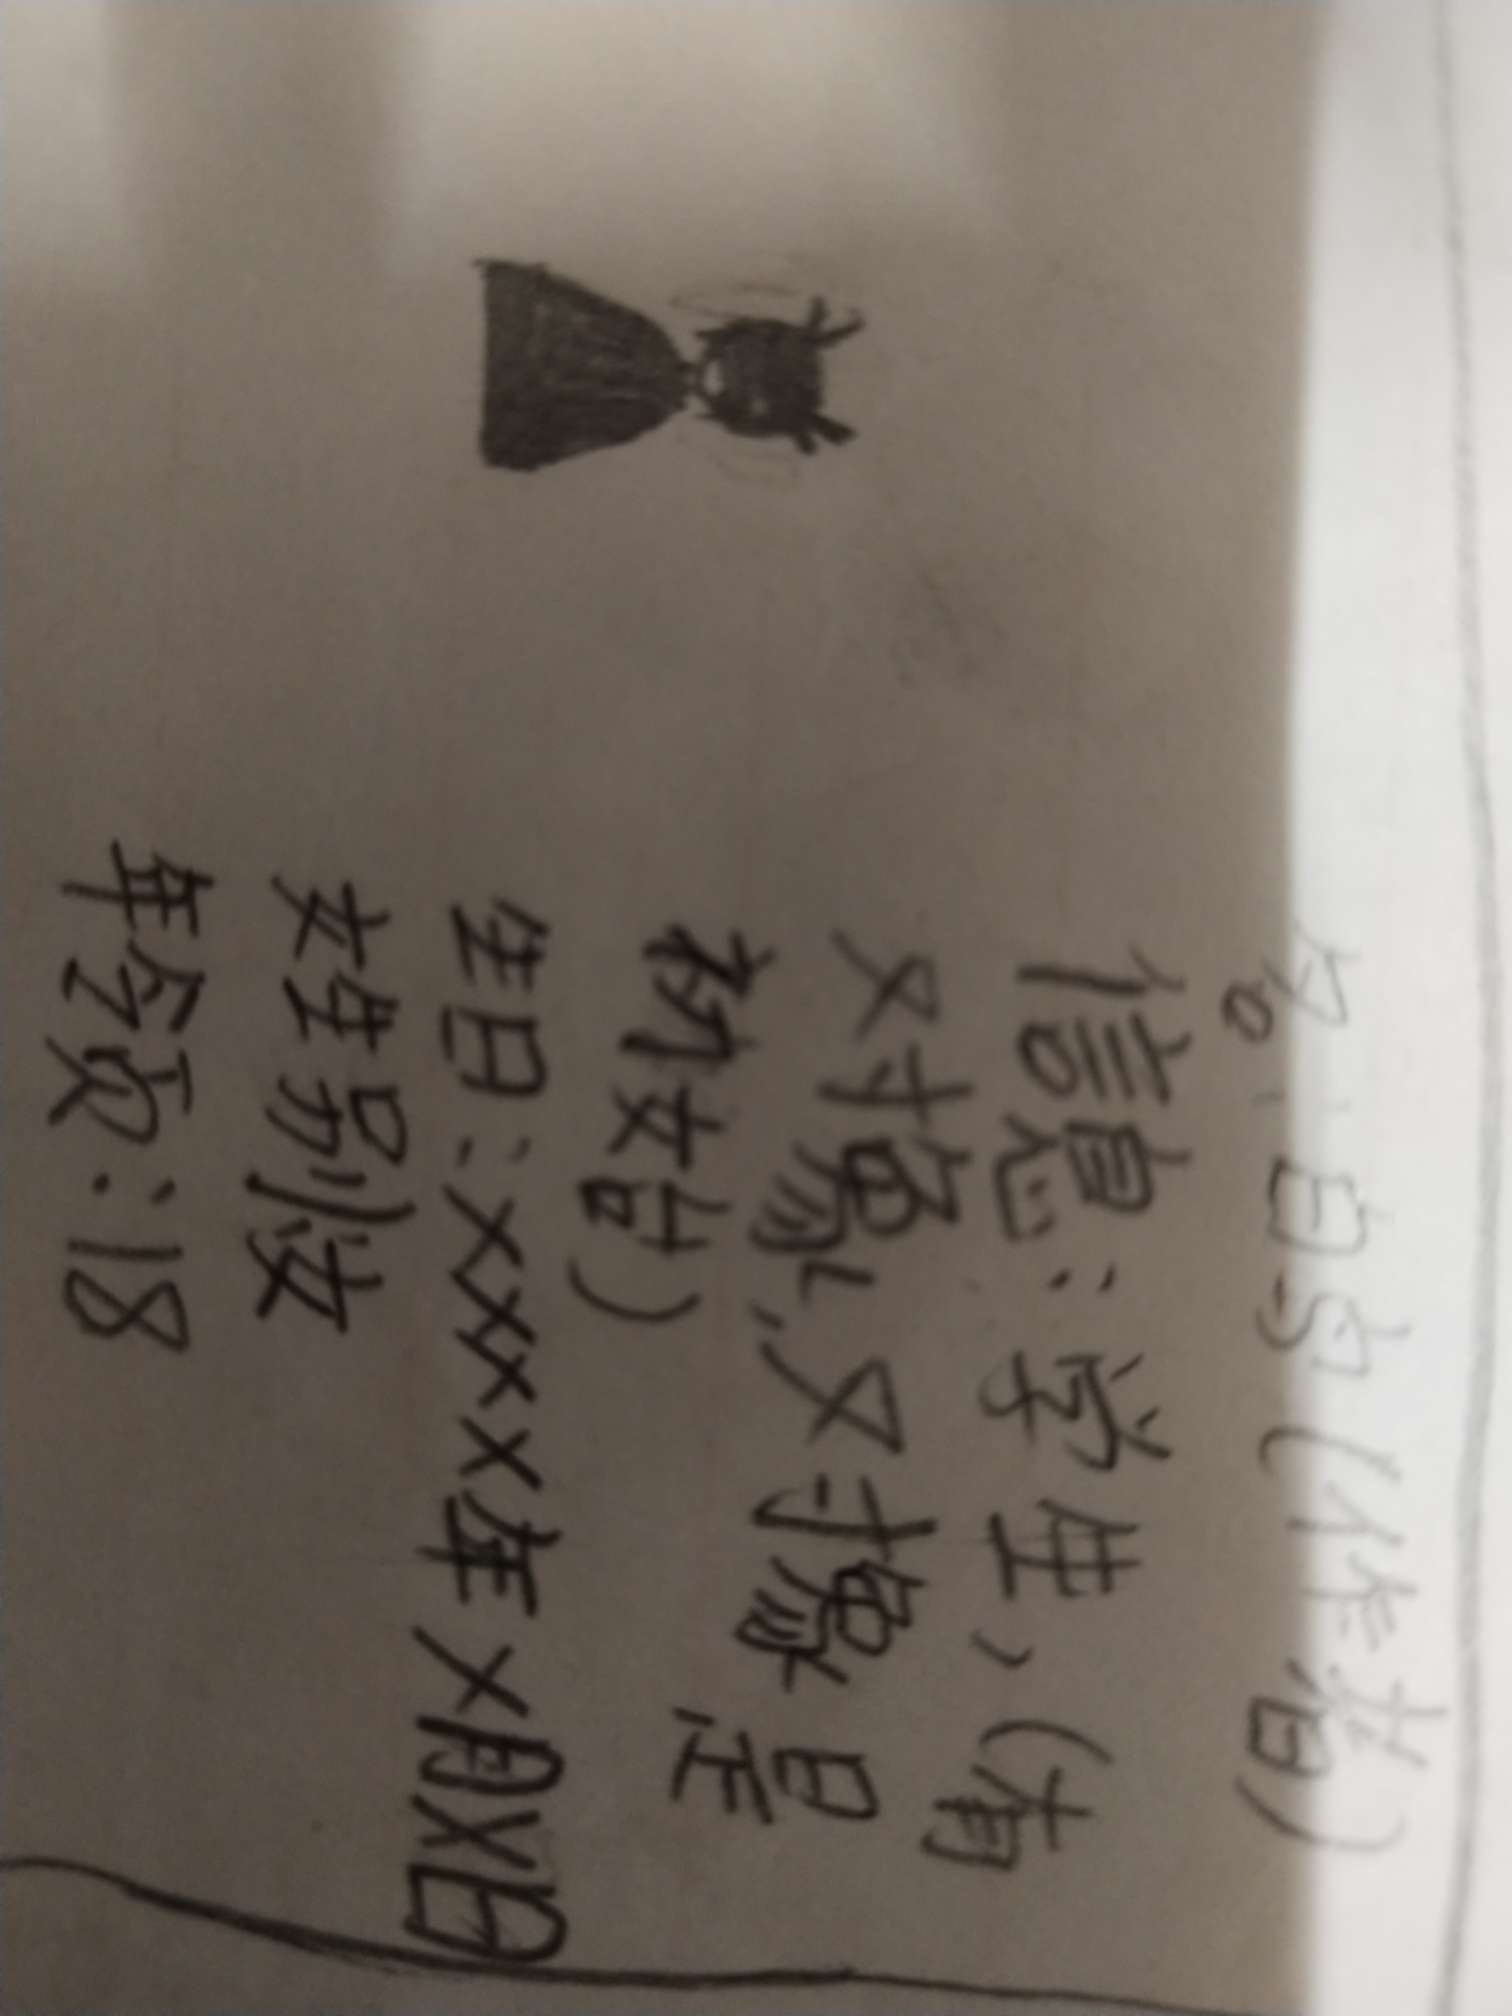 名:白马(作者)
信息:学生,(有
对象,对象是
初始)
生日:XXXX年X月X日
性别女
年龄:18